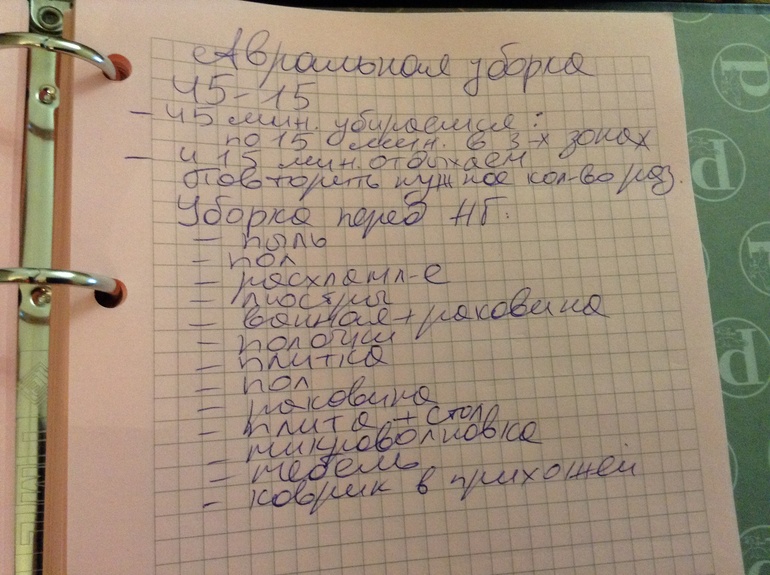 Авральная уборка
45-15
- 45 мин. убираемся:
по 15 мин. в 3-х зонах
- и 15 мин. отдыхаем
Повторить нужное кол-во раз.
Уборка перед НГ:
- пыль
- пол
- расхламл-е
- люстры
- ванная + раковина
- полочки
- плитка
- пол
- раковина
- плита + стол
микроволновка
- мебель
- коврик в прихожей